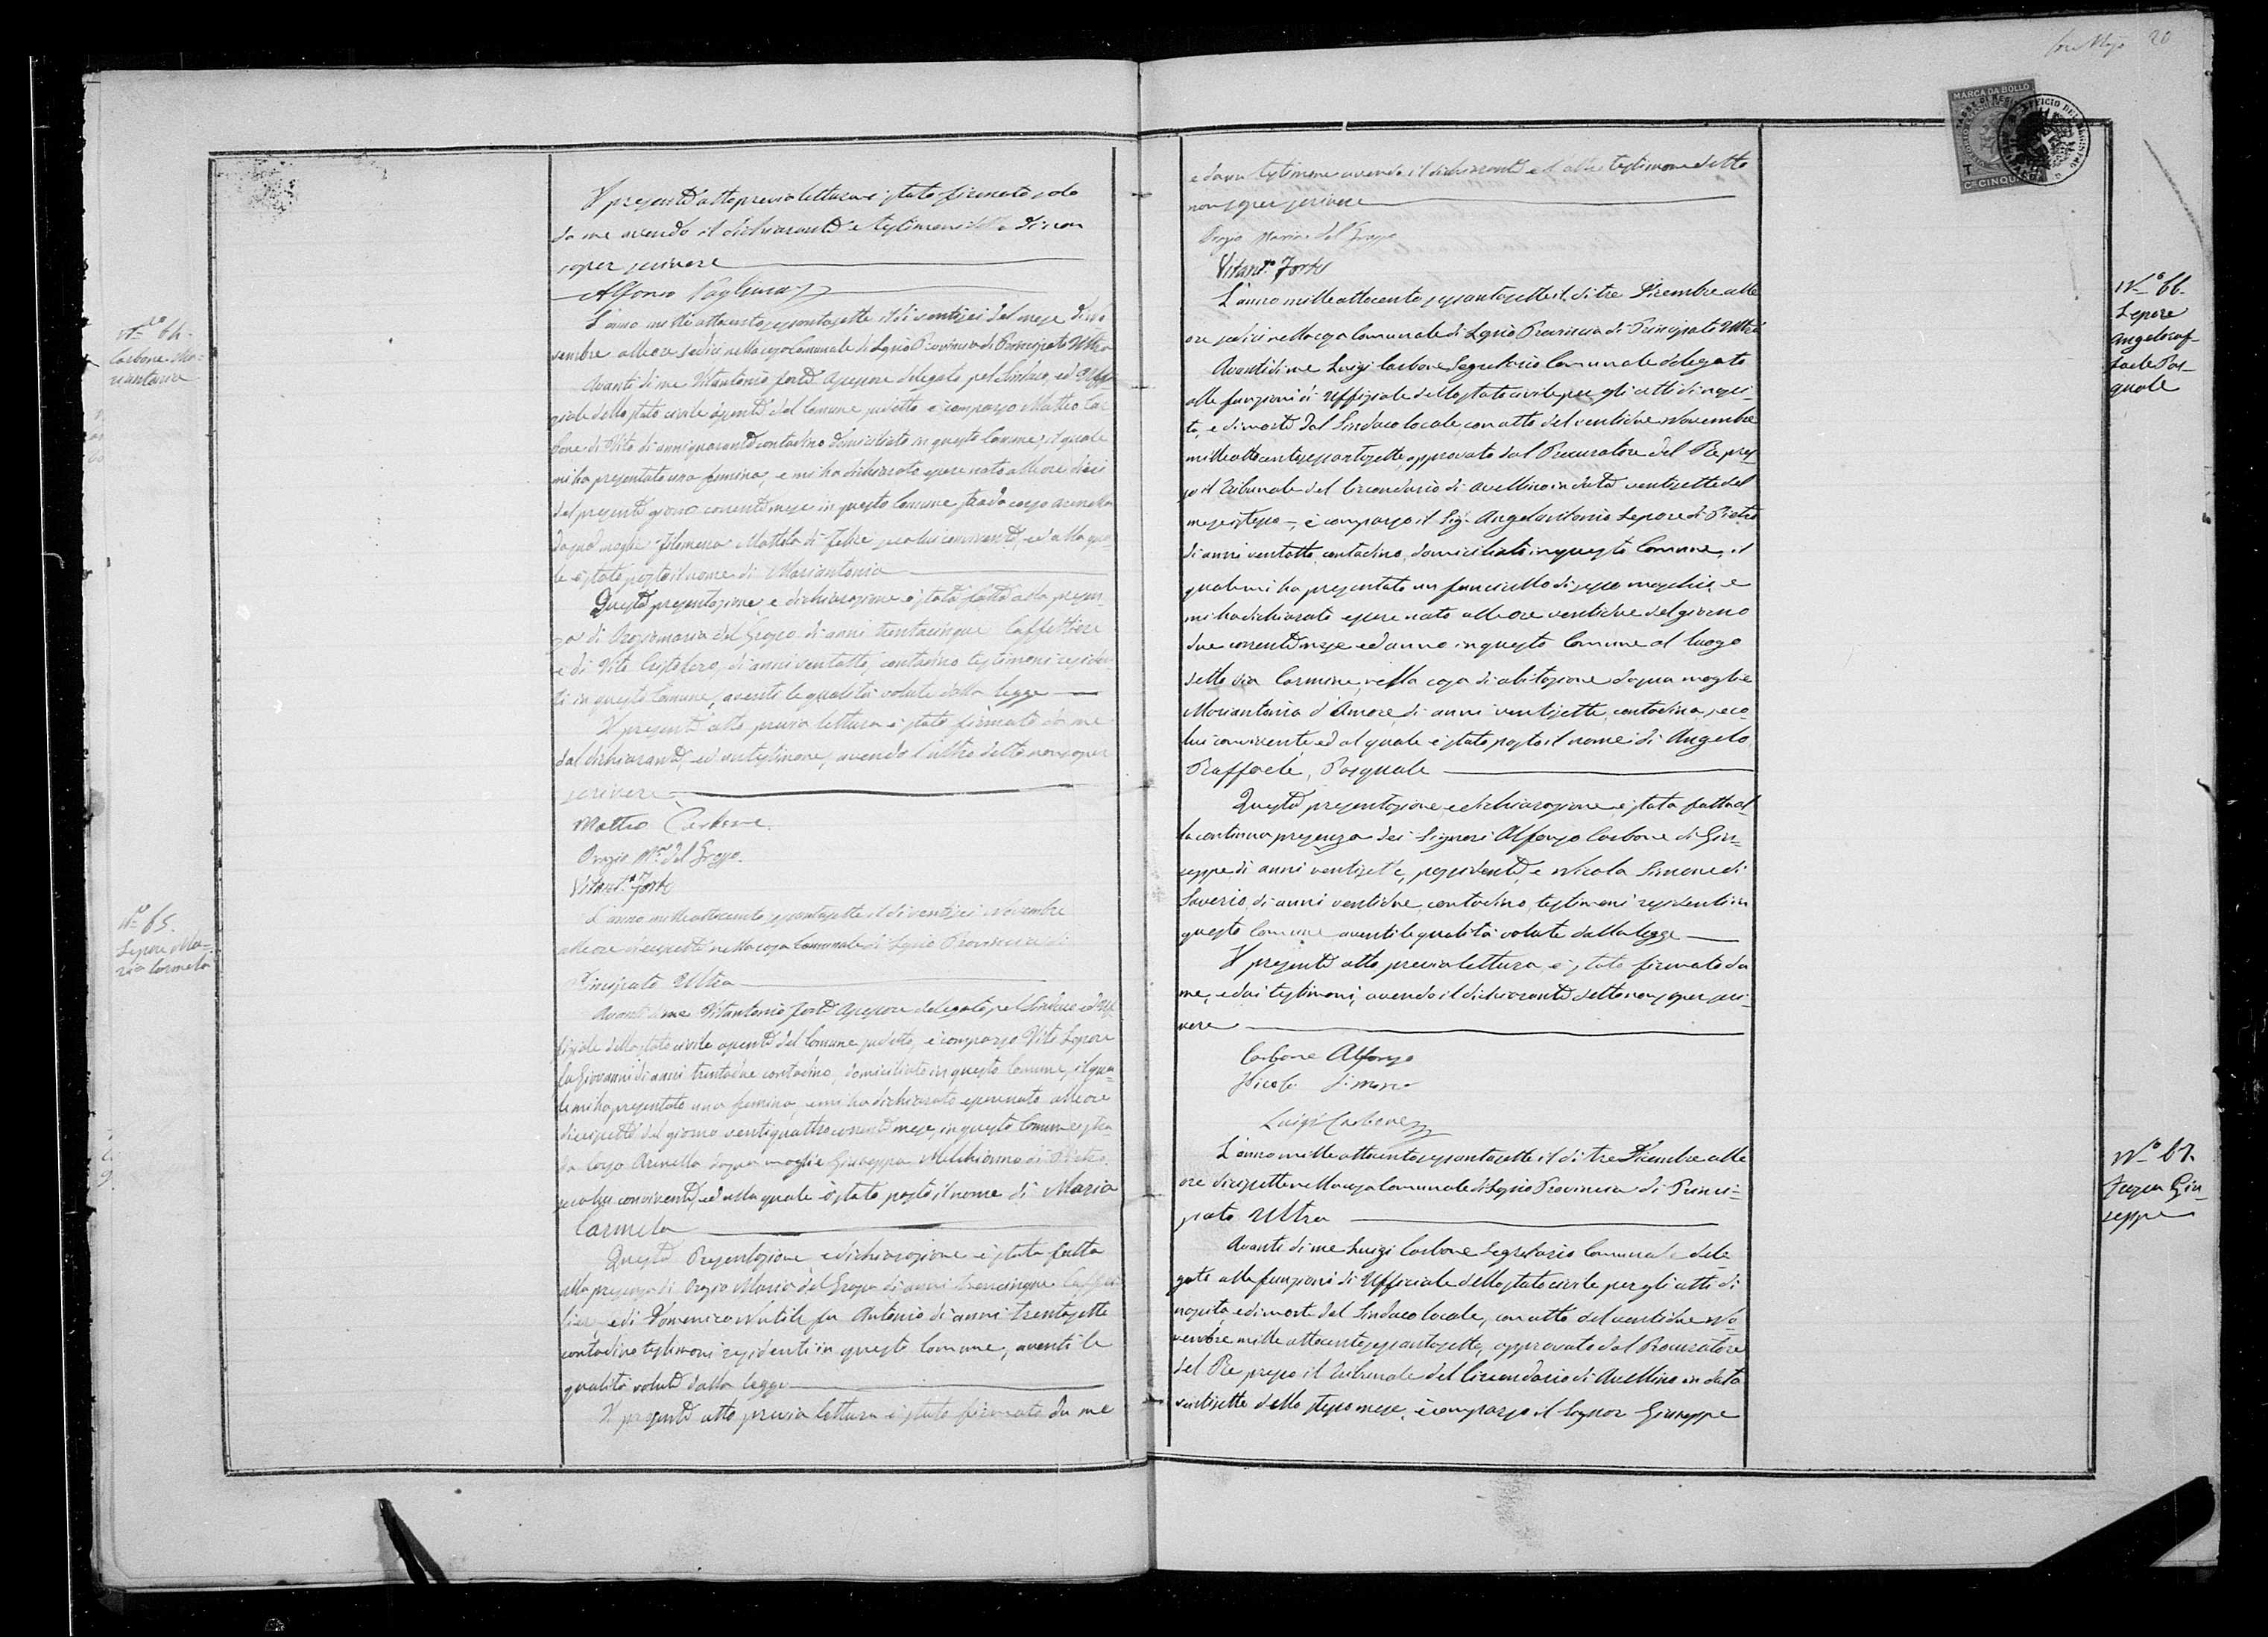 Il presente atto previa lettura è stato firmato solo
da me avendo il dichiarante e testimoni detto di non
saper scrivere
Alfonso
L'anno mille ottocento sessantasette il dì ventisei del mese di No
vembre alle ore sedici nella casa Comunale di Provincia di Principato Ultra
Avanti di me Vitantonio Forte Assessore delegato pel Sindaco, ed Uffi
ziale dello stato civile del Comune sudetto è comparso Matteo Car
bone di Vito di anni quaranta contadino domiciliato in questo Comune, il quale
mi ha presentato una femina, e mi ha dichiarato essere nata alle ore dieci
del presente giorno corrente mese in questo Comune strada corso Arenella
da sua moglie Filomena Mottola di Felice seco lui convivente, ed alla qua
le è stato posto il nome di Mariantonia
Questa presentazione, e dichiarazione è stata fatta alla presen
za di Oraziomaria del Grosso di anni trentacinque Caffettiere
e di Vito Cristofaro, di anni ventotto, contadino testimoni residen
ti in questo Comune, aventi le qualità volute dalla legge
Il presente atto previa lettura è stato firmato da me
dal dichiarante, ed un testimone, avendo l'altro detto non saper
scrivere
Matteo Carbone
Orazio Mª del Grosso
Vitant.º Forte
L'anno mille ottocento sessantasette il dì ventisei Novembre
alle ore diecisette nella casa Comunale di Provincia di
Principato Ultra
Avanti di me Vitantonio Forte Assessore delegato pel Sindaco ed Uf
fiziale dello stato civile del Comune sudetto, è comparso Vito Lepore
fu Giovanni di anni trentadue contadino, domiciliato in questo Comune, il qua-
le mi ha presentato una femina, e mi ha dichiarato essere nata alle ore
diecisette del giorno ventiquattro corrente mese, in questo Comune stra
da corso Arenella da sua moglie Giuseppa Melchionno di Pietro
seco lui convivente, ed alla quale è stato posto il nome di Maria
Carmela
Questa Presentazione e dichiarazione è stata fatta
alla presenza di Orazio Maria del Grosso di anni trencinque Caffet
tier, e di Domenico Nutile fu Antonio di anni trentasette
contadino testimoni residenti in questo Comune, aventi le
qualità volute dalla legge
Il presente atto previa lettura è stato firmato da me
Nº 64.
Carbone Ma-
riantonia
Nº 65.
Lepore Ma-
ria Carmela
20
MARCA DA BOLLO
e da un testimone avendo il dichiarante e l'altro testimone detto
non saper scrivere
Orazio Maria del Grosso
Vitant.º Forte
L'anno mille ottocento sessantasette il dì tre Dicembre alle
ore sedici nella casa Comunale di Provincia di Principato Ultra
Avanti di me Luigi Carbone Segretario Comunale delegato
alle funzioni di Uffiziale dello stato civile per gli atti di nasci-
ta, e di morte dal Sindaco locale con atto del ventidue Novembre
mille ottocento sessantasette, approvato dal Procuratore del Re pres-
so il Tribunale del Circondario di Avellino in data ventisette del
mese stesso, è comparso il Sig. Angelantonio Lepore di Pietro
di anni ventotto contadino, domiciliato in questo Comune, il
quale mi ha presentato un fanciullo di sesso maschile, e
mi ha dichiarato essere nato alle ore ventidue del giorno
due corrente mese ed anno in questo Comune al luogo
detto via Carmine, nella casa di abitazione da sua moglie
Mariantonia d'Amore, di anni ventisette contadina, seco
lui convivente, ed al quale è stato posto il nome di Angelo
Raffaele, Pasquale
Questa presentazione e dichiarazione è stata fatta al
la continua presenza dei Signori Alfonso Carbone di Giu-
seppe di anni ventisette, possidente, e Nicola Simone di
Saverio, di anni ventidue contadino testimoni residenti in
questo Comune aventi le qualità volute dalla legge
Il presente atto previa lettura, è stato firmato da
me, e dai testimoni, avendo il dichiarante detto non saper scri-
vere
Carbone Alfonso
Nicola Simone
Luigi Carbone
L'anno mille ottocento sessantasette il dì tre Dicembre alle
ore diecisette nella casa Comunale di Provincia di Princi-
pato Ultra
Avanti di me Luigi Carbone Segretario Comunale dele
gato alle funzioni di Ufficiale dello stato civile per gli atti di
nascita, e di morte dal Sindaco locale, con atto del ventidue No-
vembre mille ottocento sessantasette, approvato dal Procuratore
del Re presso il Tribunale del Circondario di Avellino in data
ventisette dello stesso mese, è comparso il Signor Giuseppe
Nº 66.
Lepore
Angeloraf-
faele Pas-
quale
Nº 67.
Giu-
seppe